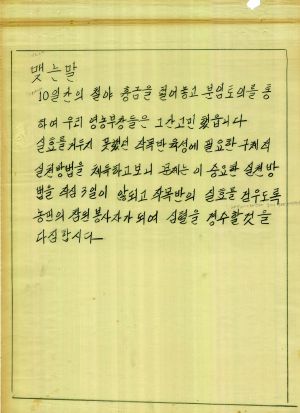 맺는말
10일간의 철야 흉금을 털어놓고 분임토의를 통
하여 우리 영농부장들은 그간 고민 했읍니다
실효를 거두지 못했던 작목반 육성에 필요한 구체적
실천방법을 체득하고보니 문제는 이 중요한 실천방
법을 작심 3일이 않되고 작목반의 실효를 걷우도록
농민의 참된 봉사자가 되여 심혈을 경수할것을
다짐합시다